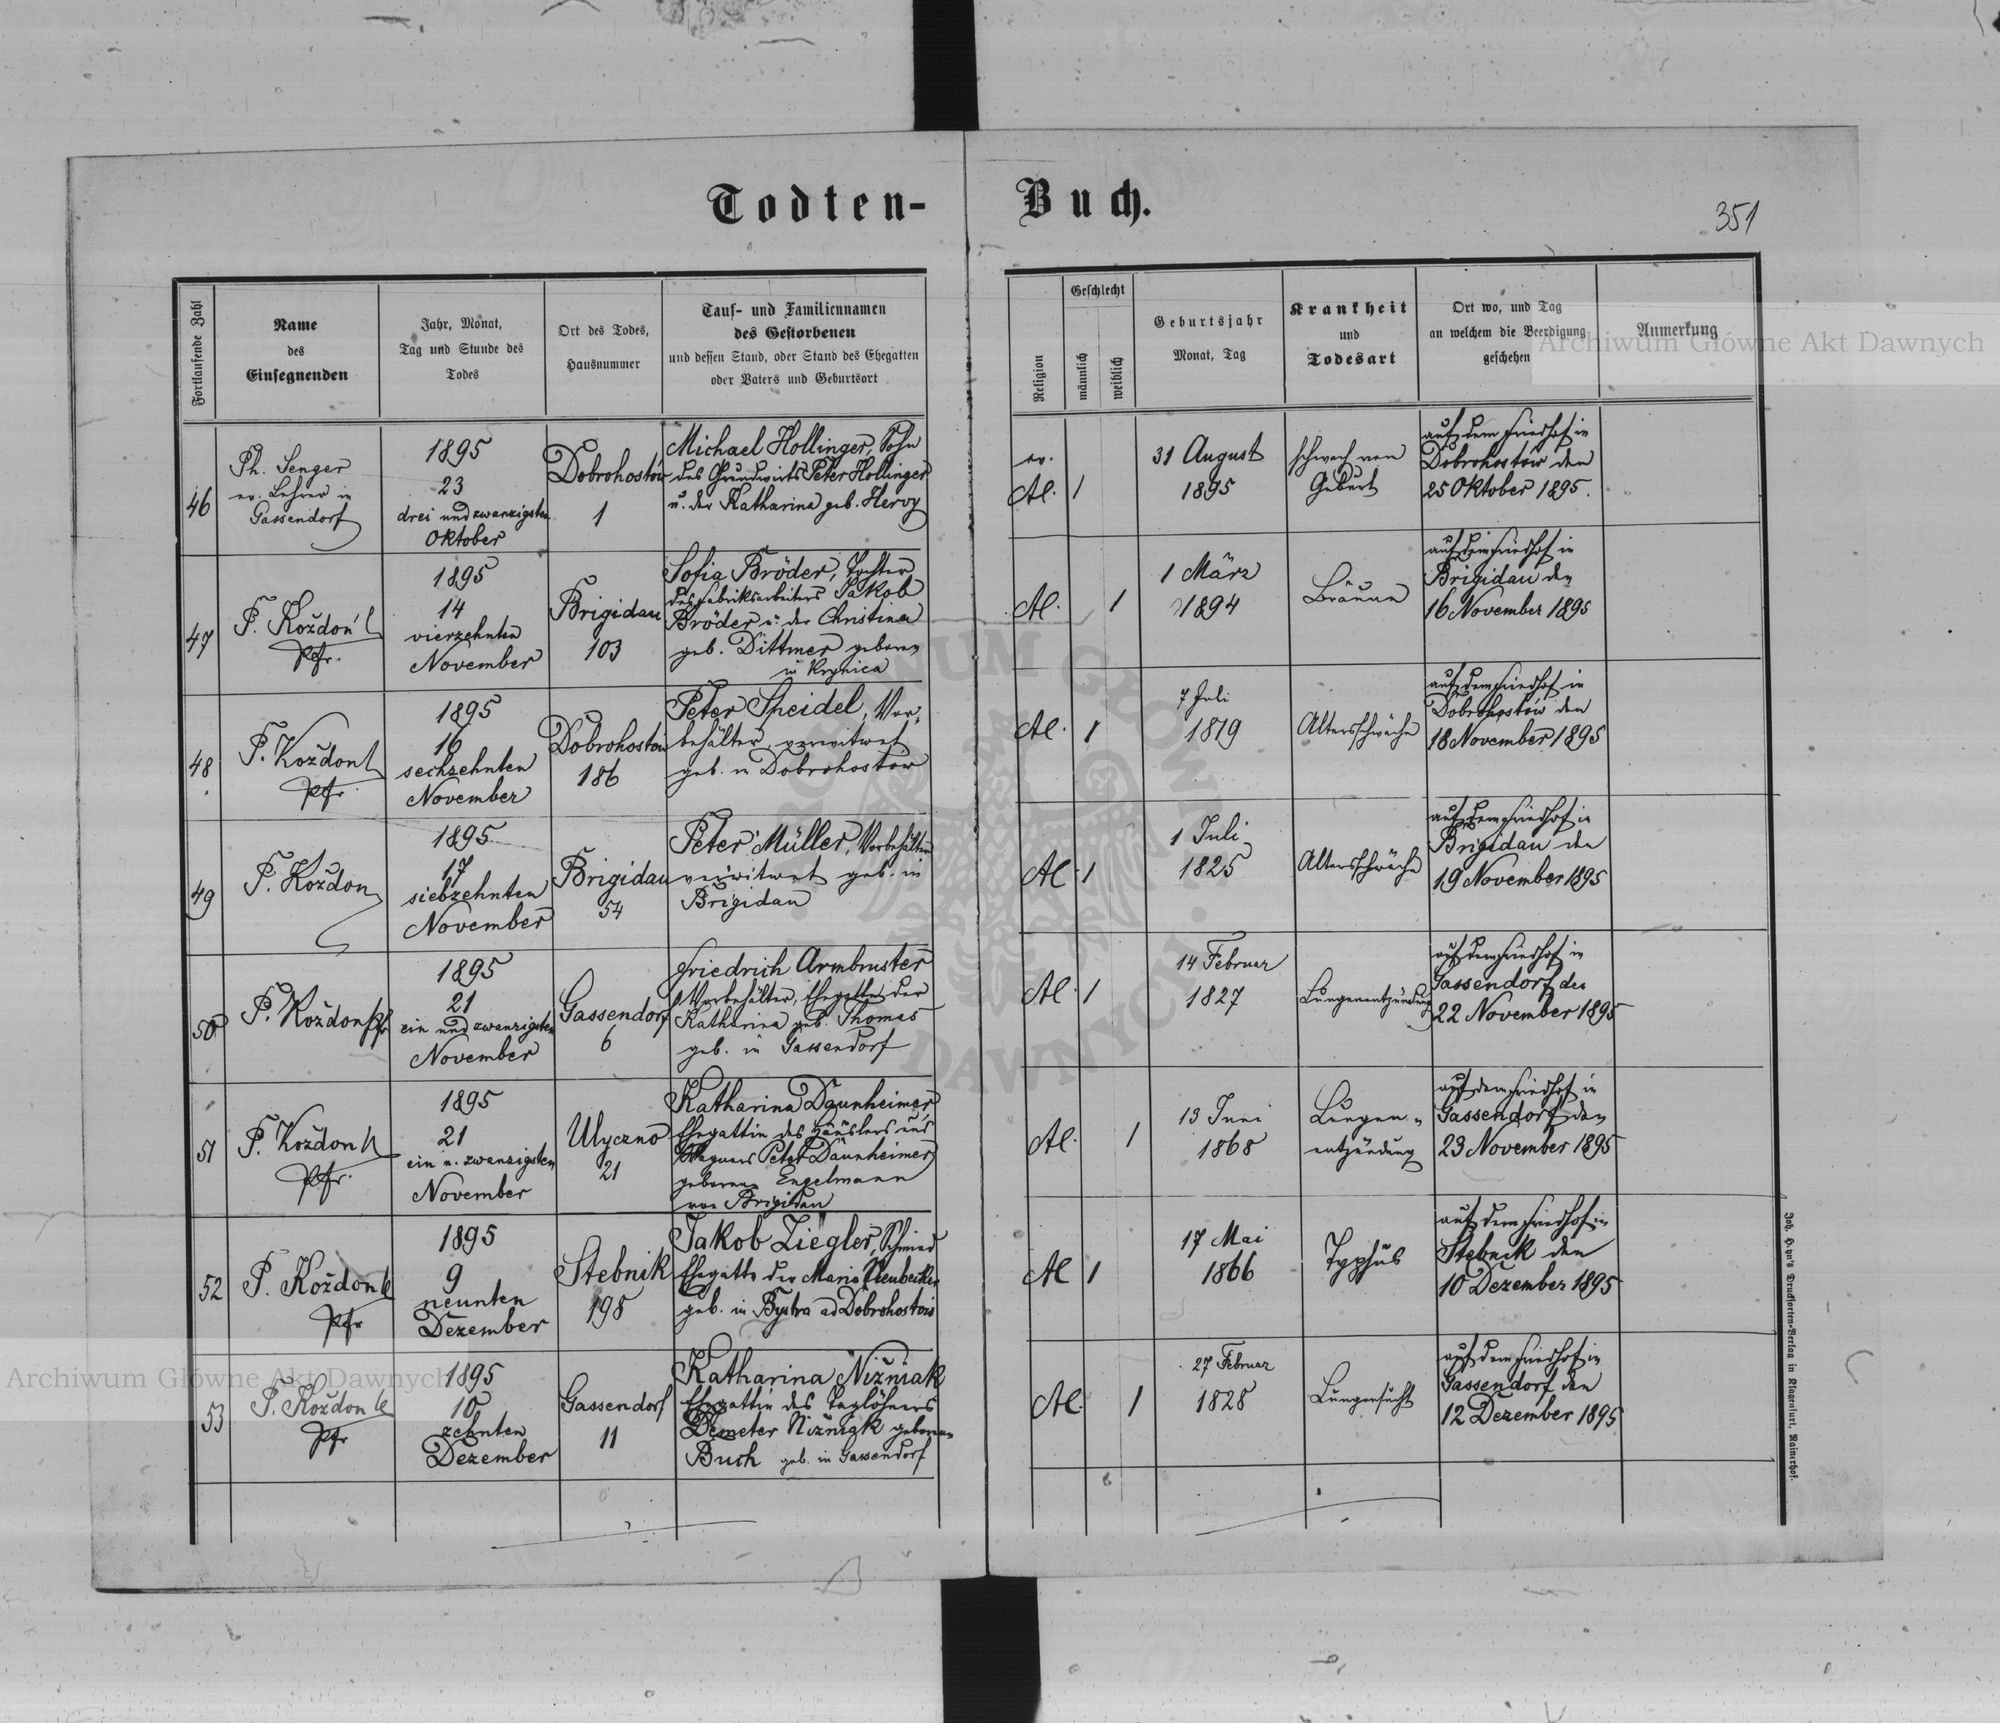 Todten-Buch.
351
Fortlaufende Zahl
Name
des
Einsegnenden
Jahr, Monat,
Tag und Stunde des
Todes
Ort des Todes,
Hausnummer
Tauf- und Familiennamen
des Gestorbenen
und dessen Stand, oder Stand des Ehegatten
oder Vaters und Geburtsort
Religion
Geschlecht
männlich
weiblich
Geburtsjahr
Monat, Tag
Krankheit
und
Todesart
Ort wo, und Tag
an welchem die Beerdigung
geschehen
Anmerkung
46
Ph. Senger
ev. Lehrer in
Gassendorf
1895
23
drei und zwanzigsten
Oktober
Dobrohostów
1
Michael Hollinger, Sohn
des Grundwirts Peter Hollinger
u. der Katharina geb. Hervy
ev.
AC.
1
31 August
1895
schwach von
Geburt
auf dem Friedhof in
Dobrohostów den
25 Oktober 1895.
47
P. Koždoń
Pfr.
1895
14
vierzehnten
November
Brigidau
103
Sofia Bröder, Tochter
des Fabriksarbeiters Jakob
Bröder u. der Christina
geb. Dittmer geboren
in Krynica
AC.
1
1 März
1894
Bräune
auf dem Friedhof in
Brigidau den
16 November 1895
48
P. Koždon
Pfr.
1895
16
sechzehnten
November
Dobrohostów
186
Peter Speidel, Vor-
behälter, verwitwet
geb. in Dobrohostów
AC.
1
7 Juli
1819
Altersschwäche
auf dem Friedhof in
Dobrohostów den
18 November 1895
49
P. Koždon
1895
17
siebzehnten
November
Brigidau
54
Peter Müller, Vorbehälter
verwitwet geb. in
Brigidau
AC.
1
1 Juli
1825
Altersschwäche
auf dem Friedhof in
Brigidau den
19 November 1895
50
P. Koždon Pfr
1895
21
ein und zwanzigsten
November
Gassendorf
6
Friedrich Armbruster
Vorbehälter, Ehegatte der
Katharina geb. Thomas
geb. in Gassendorf
AC.
1
14 Februar
1827
Lungenentzündung
auf dem Friedhof in
Gassendorf den
22 November 1895
51
P. Koždon
Pfr.
1895
21
ein u. zwanzigsten
November
Ulyczno
21
Katharina Daunheimer
Ehegattin des Häuslers und
Wagners Peter Daunheimer
geborene Engelmann
von Brigidau
AC.
1
13 Juni
1868
Lungen-
entzündung
auf dem Friedhof in
Gassendorf den
23 November 1895
52
P. Koždon
Pfr
1895
9
neunten
Dezember
Stebnik
198
Jakob Ziegler, Schmied
Ehegatte der Maria Neubecker
geb. in Bystra ad Dobrohostów
AC
1
17 Mai
1866
Typhus
auf dem Friedhof in
Stebnik den
10 Dezember 1895
53
P. Koždon
Pfr
1895
10
zehnten
Dezember
Gassendorf
11
Katharina Niżniak
Ehegattin des Taglöhners
Demeter Niżniak geborene
Buch geb. in Gassendorf
AC.
1
27 Februar
1828
Lungensucht
auf dem Friedhof in
Gassendorf den
12 Dezember 1895
Joh. Heyn's Drucksorten-Verlag in Klagenfurt, Rainerhof.
Archiwum Główne Akt Dawnych
Archiwum Główne Akt Dawnych
ARCHIWUM GŁÓWNE AKT DAWNYCH